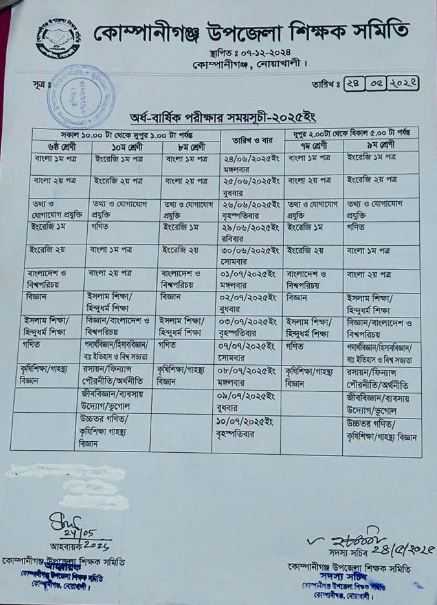 কোম্পানীগঞ্জ উপজেলা শিক্ষক সমিতি
স্থাপিত ঃ ০৭-১২-২০২৪
কোম্পানীগঞ্জ, নোয়াখালী।
সূত্র ঃ
তারিখ ঃ ২৪ ০৫ ২০২৫
অর্ধ-বার্ষিক পরীক্ষার সময়সূচী-২০২৫ইং
সকাল ১০.০০ টা থেকে দুপুর ১.০০ টা পর্যন্ত তারিখ ও বার দুপুর ২.০০টা থেকে বিকাল ৫.০০ টা পর্যন্ত
৬ষ্ঠ শ্রেণী ১০ম শ্রেণী ৮ম শ্রেণী ৭ম শ্রেণী ৯ম শ্রেণী
বাংলা ১ম পত্র ইংরেজি ১ম পত্র বাংলা ১ম পত্র ২৪/০৬/২০২৫ইং বাংলা ১ম পত্র ইংরেজি ১ম পত্র
মঙ্গলবার
বাংলা ২য় পত্র ইংরেজি ২য় পত্র বাংলা ২য় পত্র ২৫/০৬/২০২৫ইং বাংলা ২য় পত্র ইংরেজি ২য় পত্র
বুধবার
তথ্য ও তথ্য ও যোগাযোগ তথ্য ও যোগাযোগ ২৬/০৬/২০২৫ইং তথ্য ও যোগাযোগ তথ্য ও যোগাযোগ
যোগাযোগ প্রযুক্তি প্রযুক্তি প্রযুক্তি বৃহস্পতিবার প্রযুক্তি প্রযুক্তি
ইংরেজি ১ম গণিত ইংরেজি ১ম ২৯/০৬/২০২৫ইং ইংরেজি ১ম গণিত
রবিবার
ইংরেজি ২য় বাংলা ১ম পত্র ইংরেজি ২য় ৩০/০৬/২০২৫ইং ইংরেজি ২য় বাংলা ১ম পত্র
সোমবার
বাংলাদেশ ও বাংলা ২য় পত্র বাংলাদেশ ও ০১/০৭/২০২৫ইং বাংলাদেশ ও বাংলা ২য় পত্র
বিশ্বপরিচয় বিশ্বপরিচয় মঙ্গলবার বিশ্বপরিচয়
বিজ্ঞান ইসলাম শিক্ষা/ বিজ্ঞান ০২/০৭/২০২৫ইং বিজ্ঞান ইসলাম শিক্ষা/
হিন্দুধর্ম শিক্ষা বুধবার হিন্দুধর্ম শিক্ষা
ইসলাম শিক্ষা/ বিজ্ঞান/বাংলাদেশ ও ইসলাম শিক্ষা/ ০৩/০৭/২০২৫ইং ইসলাম শিক্ষা/ বিজ্ঞান/বাংলাদেশ ও
হিন্দুধর্ম শিক্ষা বিশ্বপরিচয় হিন্দুধর্ম শিক্ষা বৃহস্পতিবার হিন্দুধর্ম শিক্ষা বিশ্বপরিচয়
গণিত পদার্থবিজ্ঞান/হিসাববিজ্ঞান/ গণিত ০৭/০৭/২০২৫ইং গণিত পদার্থবিজ্ঞান/হিসাববিজ্ঞান/
বাঃ ইতিহাস ও বিশ্ব সভ্যতা সোমবার বাঃ ইতিহাস ও বিশ্ব সভ্যতা
কৃষিশিক্ষা/গার্হস্থ্য রসায়ন/ফিন্যান্স কৃষিশিক্ষা/গার্হস্থ্য ০৮/০৭/২০২৫ইং কৃষিশিক্ষা/গার্হস্থ্য রসায়ন/ফিন্যান্স
বিজ্ঞান পৌরনীতি/অর্থনীতি বিজ্ঞান মঙ্গলবার বিজ্ঞান পৌরনীতি/অর্থনীতি
জীববিজ্ঞান/ব্যবসায় ০৯/০৭/২০২৫ইং জীববিজ্ঞান/ব্যবসায়
উদ্যোগ/ভূগোল বুধবার উদ্যোগ/ভূগোল
উচ্চতর গণিত/ ১০/০৭/২০২৫ইং উচ্চতর গণিত/
কৃষিশিক্ষা গার্হস্থ্য বৃহস্পতিবার কৃষিশিক্ষা/গার্হস্থ্য বিজ্ঞান
বিজ্ঞান
24/05
2025
আহবায়ক
কোম্পানীগঞ্জ উপজেলা শিক্ষক সমিতি
আহবায়ক
কোম্পানীগঞ্জ উপজেলা শিক্ষক সমিতি
কোম্পানীগঞ্জ, নোয়াখালী।
সদস্য সচিব ২৪/৫/২০২৫
কোম্পানীগঞ্জ উপজেলা শিক্ষক সমিতি
সদস্য সচিব
কোম্পানীগঞ্জ উপজেলা শিক্ষক সমিতি
কোম্পানীগঞ্জ, নোয়াখালী।